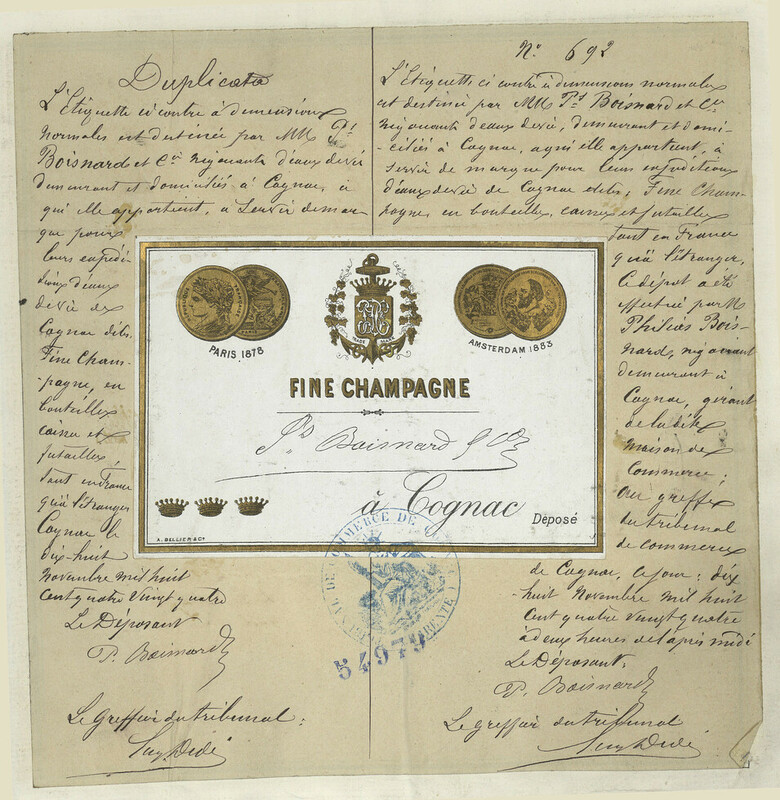 Duplicata
L'Etiquette ci contre à dimensions
normales est destinée par MM Ps
Boisnard et Cie négociants d'eaux de vie
demeurant et domiciliés à Cognac, à
qui elle appartient, à servir de mar
que pour
leurs expédi
tions d'eaux
de vie de
Cognac dites
Fine Cham-
-pagne, en
bouteilles
caisses et
futailles,
tant en France
qu'à l'étranger
Cognac le
dix-huit
Novembre mil huit
cent quatre vingt quatre
Le Déposant
P. Boisnard
Le Greffier du tribunal:
No 692
L'Etiquette ci contre à dimensions normales
est destinée par MM Ps Boisnard et Cie
négociants d'eaux de vie, demeurant et domi-
-ciliés à Cognac, à qui elle appartient, à
servir de marque pour leurs expéditions
d'eaux de vie de Cognac dites, Fine Cham-
pagne, en bouteilles, caisses et futailles
tant en France
qu'à l'étranger,
Ce dépôt a été
effectué par M
Philéas Bois-
nard, négociant
demeurant à
Cognac, gérant
de la dite
maison de
commerce;
Au greffe
du tribunal
de commerce
de Cognac, ce jour: dix
huit Novembre mil huit
cent quatre vingt quatre
à deux heures de l'après midi
Le Déposant:
P. Boisnard
Le greffier du tribunal
PARIS 1878
TRADE MARK
AMSTERDAM 1883
FINE CHAMPAGNE
Ps Boisnard & Co
à Cognac
Déposé
A. BELLIER & Cie
DE COMMERCE DE
54979